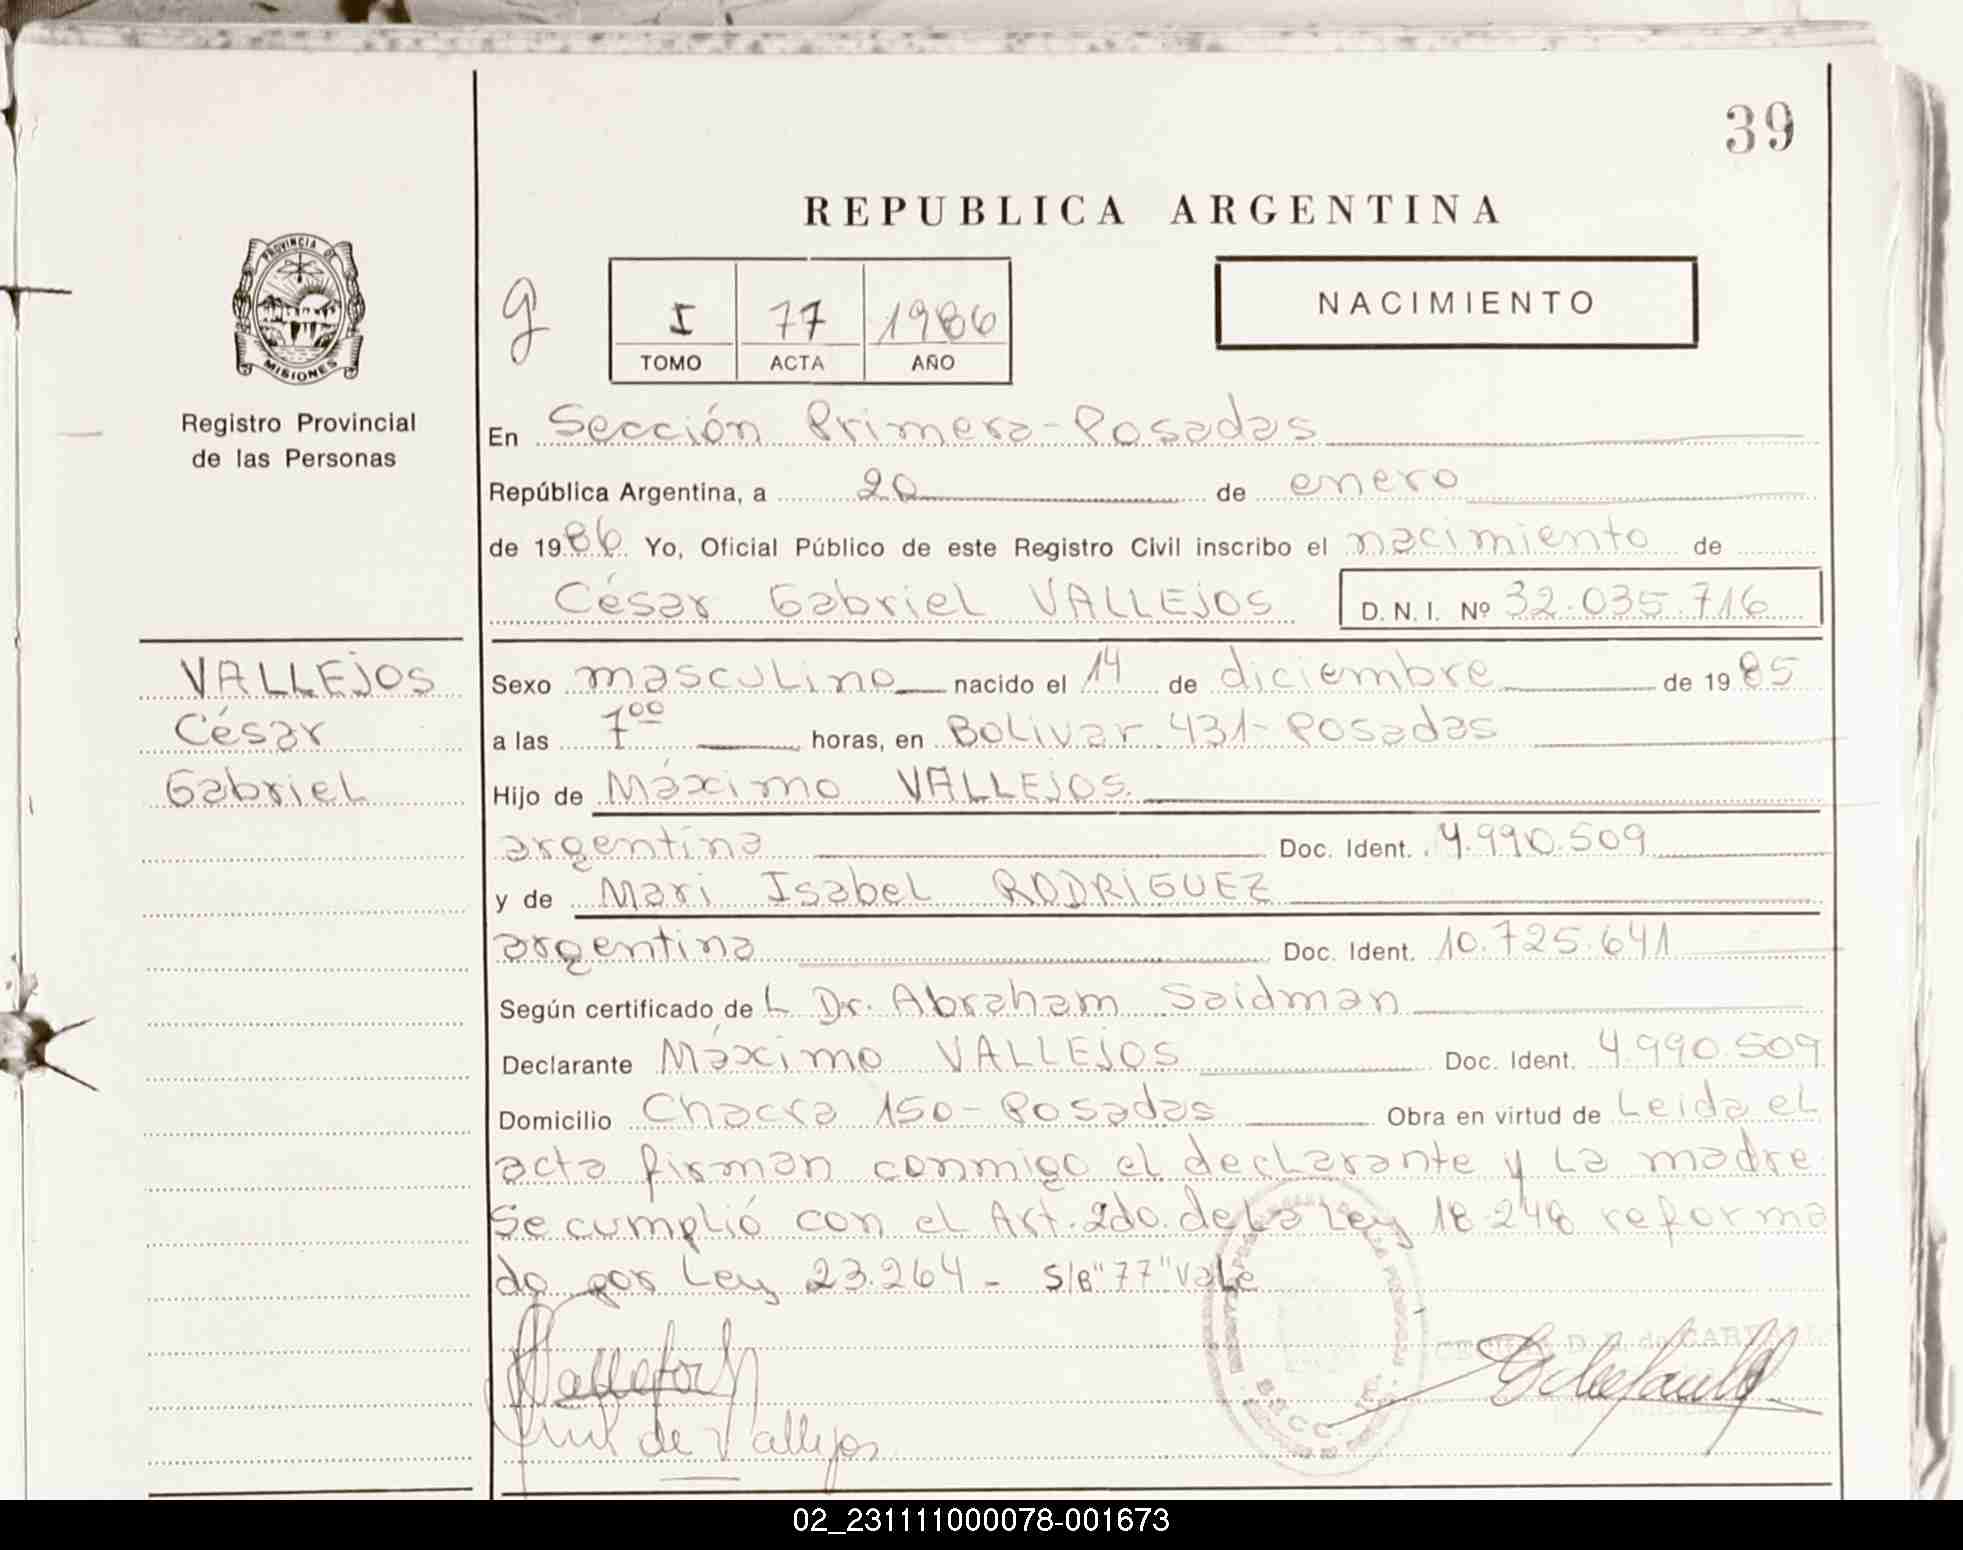 39
REPUBLICA ARGENTINA
PROVINCIA DE
MISIONES
Registro Provincial
de las Personas
g
I 77 1986
TOMO ACTA AÑO
NACIMIENTO
En Sección Primera-Posadas
República Argentina, a 20 de enero
de 1986 Yo, Oficial Público de este Registro Civil inscribo el nacimiento de
César Gabriel VALLEJOS D. N. I. Nº 32.035.716
VALLEJOS
César
Gabriel
Sexo masculino nacido el 14 de diciembre de 1985
a las 7⁰⁰ horas, en Bolivar 431-Posadas
Hijo de Máximo VALLEJOS.
argentina Doc. Ident. 4.990.509
y de Mari Isabel RODRIGUEZ
argentina Doc. Ident. 10.725.641
Según certificado de L Dr. Abraham Saidman
Declarante Máximo VALLEJOS Doc. Ident. 4.990.509
Domicilio Chacra 150-Posadas Obra en virtud de Leida el
acta firman conmigo el declarante y la madre.
Se cumplió con el Art. 2do. de la Ley 18.248 reforma
do por Ley 23.264 - S/B "77" Vale
de Vallejos
02_231111000078-001673